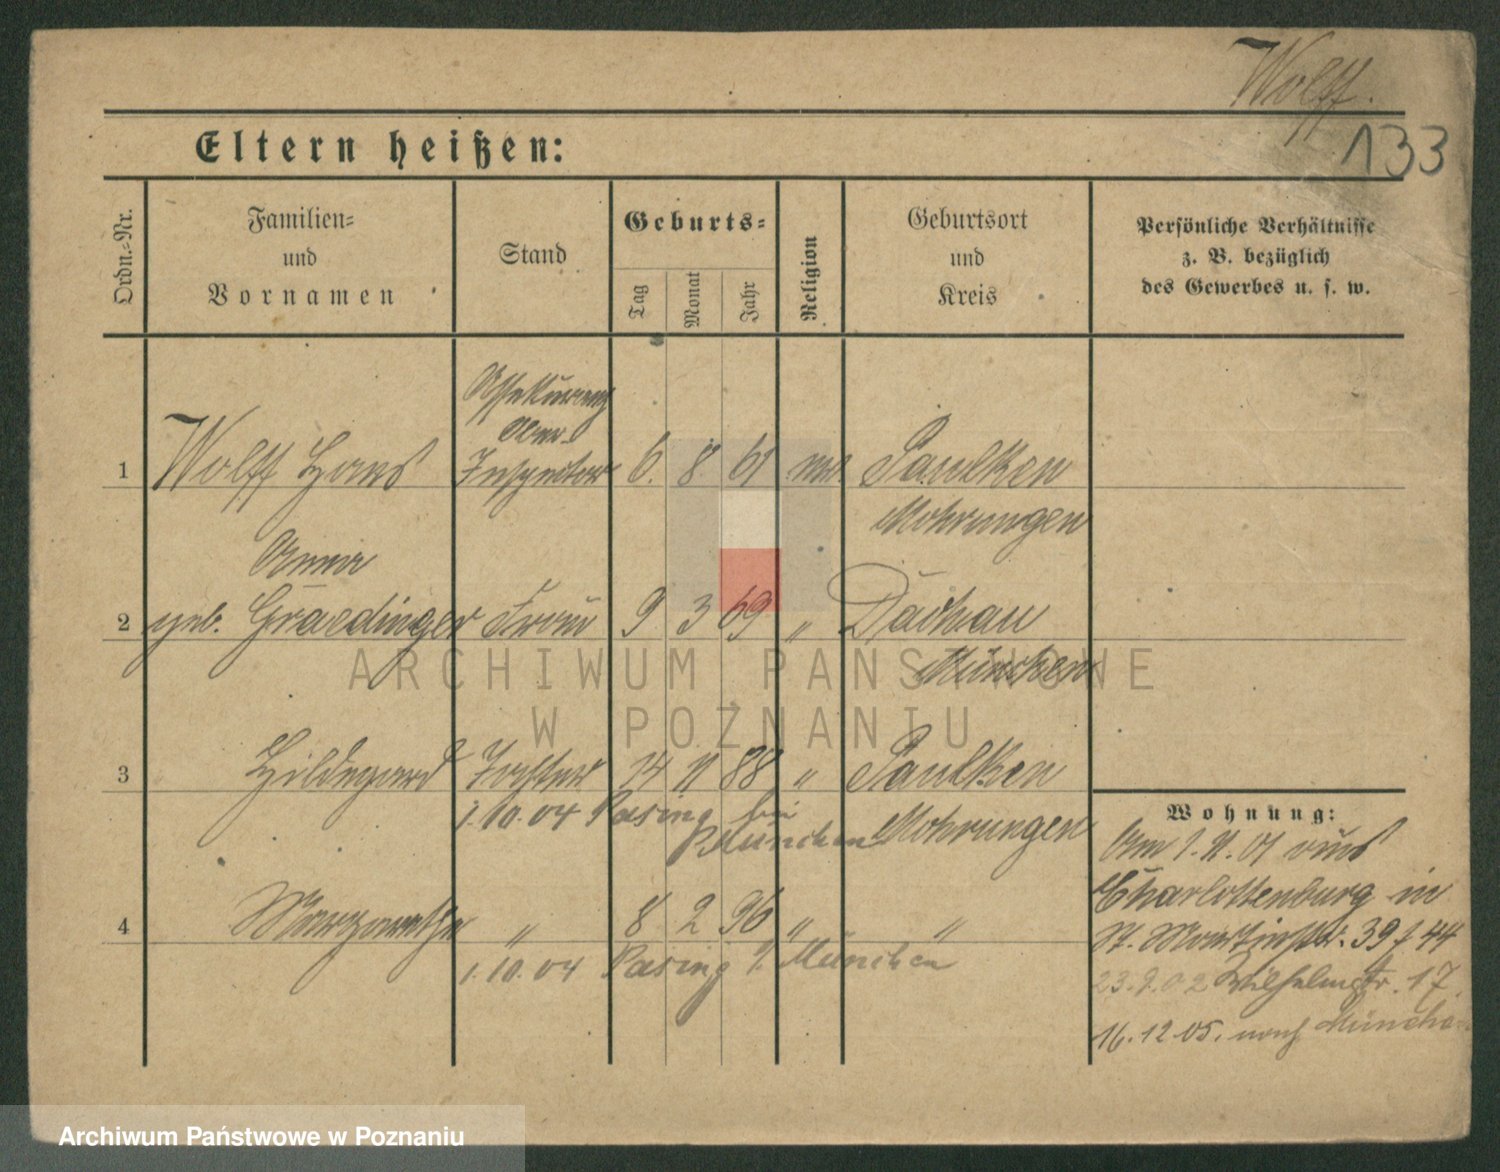 Wolff.
133
Eltern heißen:
Ordn.=Nr.
Familien=
und
Vornamen
Stand
Geburts=
Tag
Monat
Jahr
Religion
Geburtsort
und
Kreis
Persönliche Verhältnisse
z. B. bezüglich
des Gewerbes u. s. w.
1 Wolff Hans
Assekuranz
Ober-
Inspektor
6. 8. 61
Paulken
Mohrungen
Anna
2 geb. Graedinger Frau 9 3 69 " Dachau
München
3 Hildegard Tochter 14 11 88 " Paulken
1.10.04 Pasing bei
München
Mohrungen
4 Margarethe " 8 2 96 " "
1.10.04 Pasing b. München
Wohnung:
Am 1.11.01 aus
Charlottenburg in
St. Martinstr. 39 / 44
23.9.02 Wilhelmstr. 17
16.12.05. nach München
ARCHIWUM PAŃSTWOWE
W POZNANIU
Archiwum Państwowe w Poznaniu